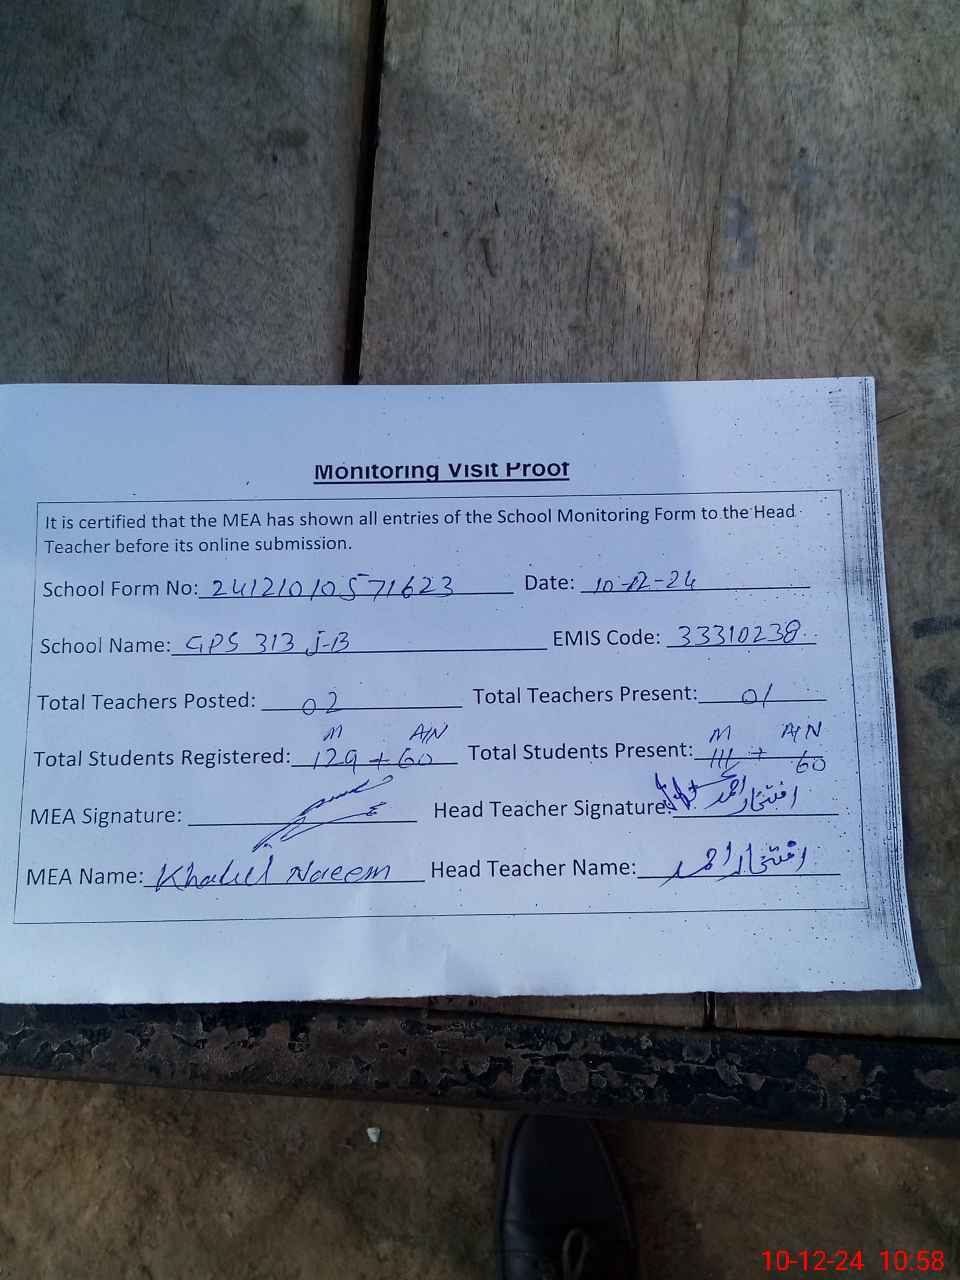 Monitoring Visit Proof
It is certified that the MEA has shown all entries of the School Monitoring Form to the Head
Teacher before its online submission.
School Form No: 24121010571623 Date: 10-12-24
School Name: GPS 313 J-B EMIS Code: 33310238
Total Teachers Posted: 02 Total Teachers Present: 01
M A/N M A/N
Total Students Registered: 129 + 60 Total Students Present: 111 + 60
MEA Signature: Head Teacher Signature: افتخار احمد
MEA Name: Khalil Naeem Head Teacher Name: افتخار احمد
10-12-24 10:58